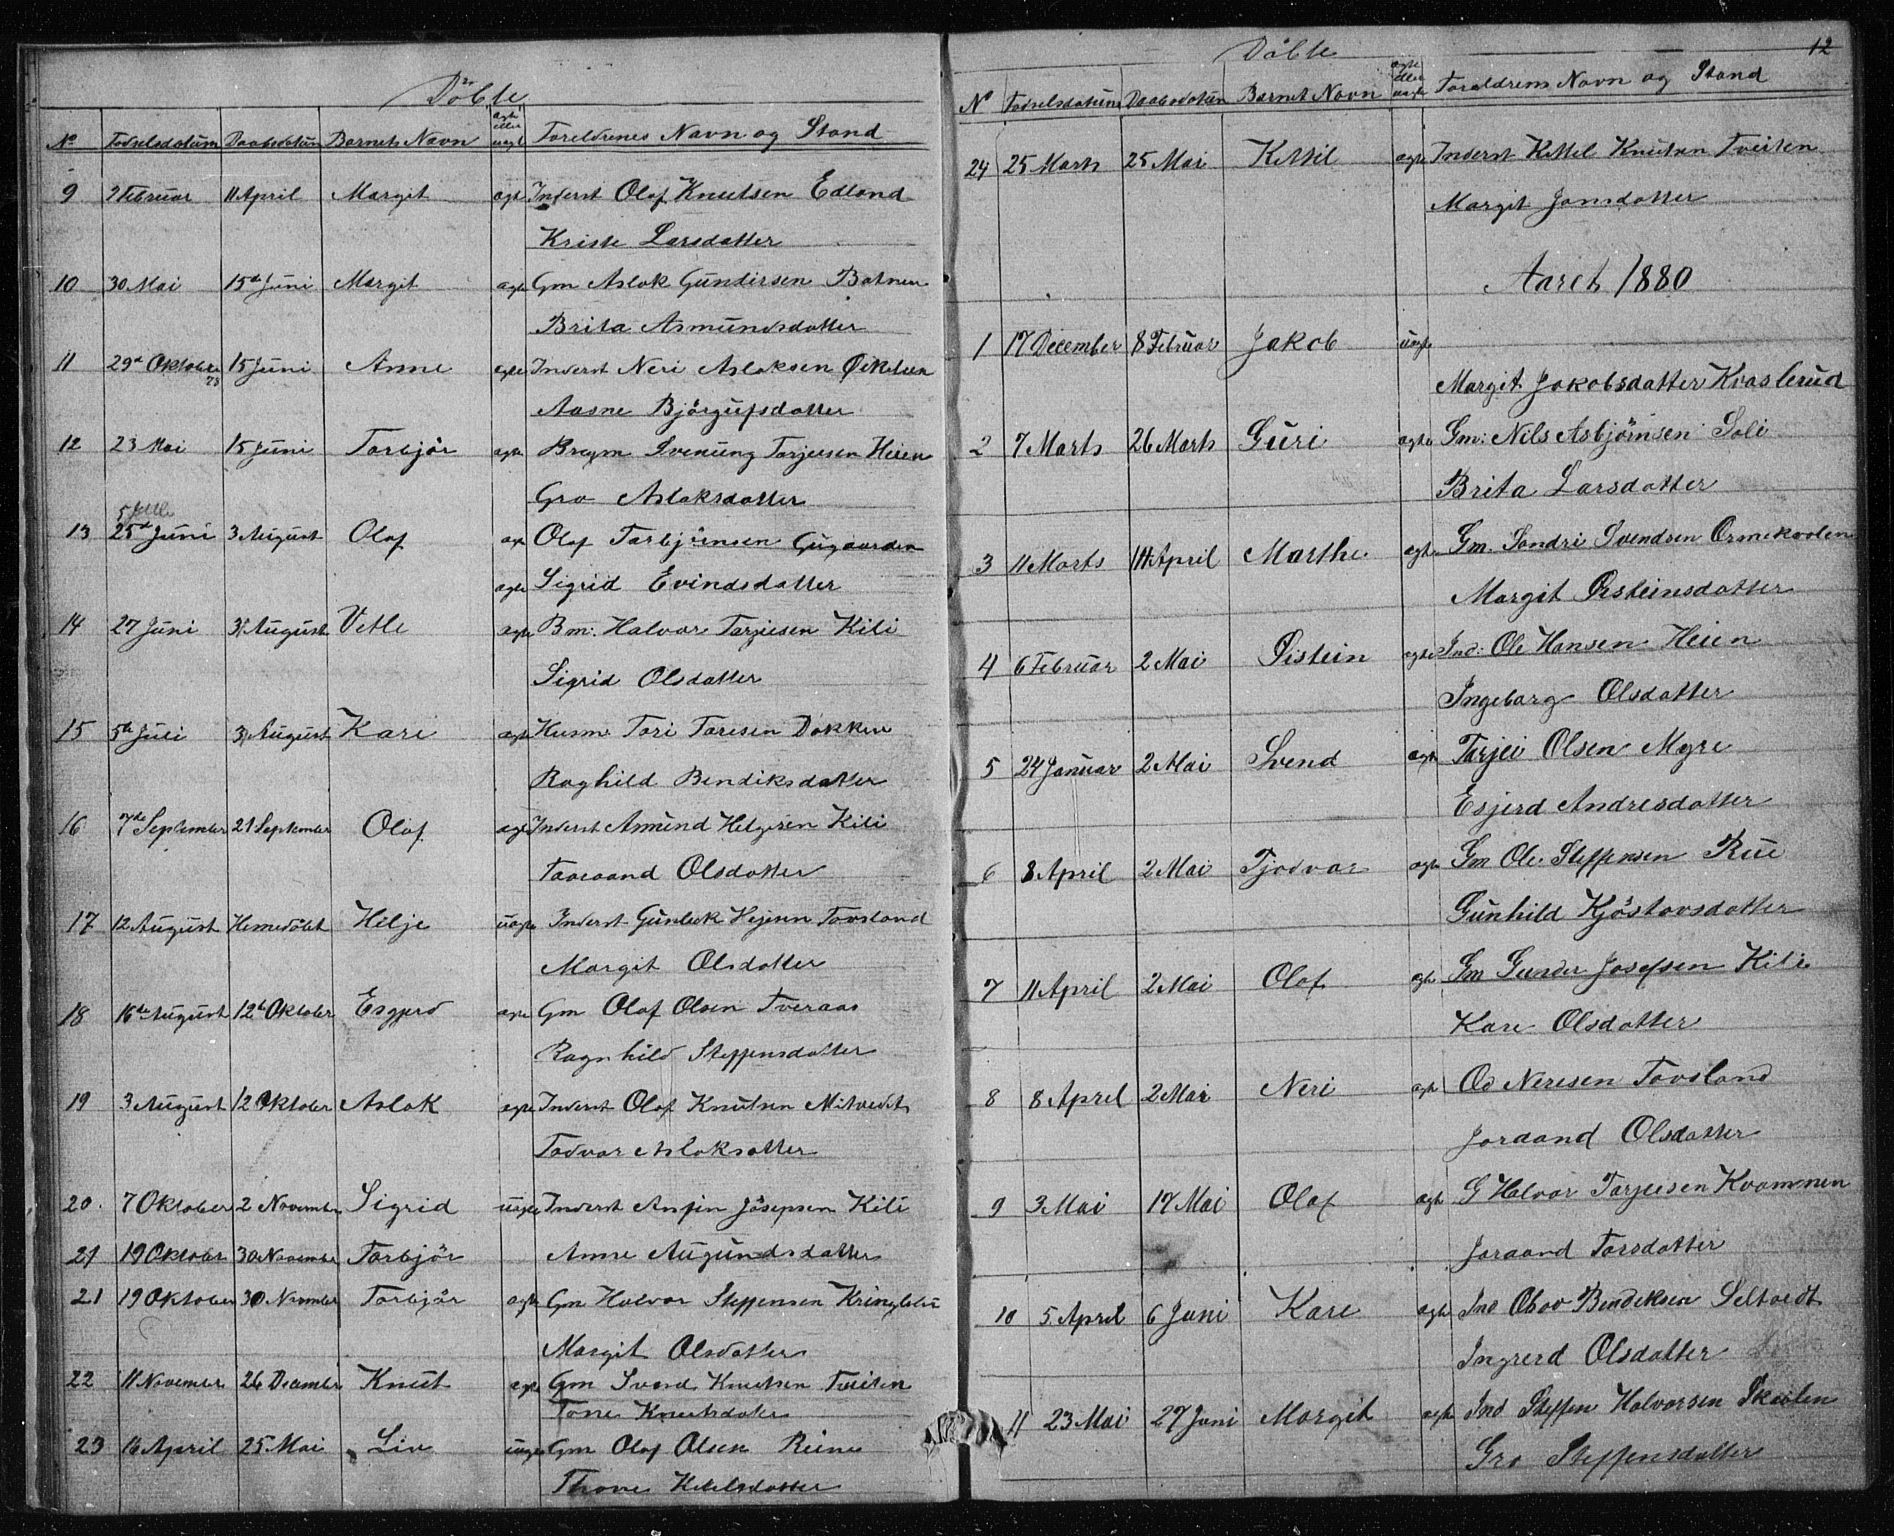 Döbte
No Fødselsdatum Daabsdatum Barnets Navn ægte eller uægt Foreldrenes Navn og Stand
9 2 Februar 11 April Margit ægte Inderst Olaf Knutsen Edland
Kriste Larsdatter
10 30 Mai 15de Juni Margit ægte Gm Aslak Gundersen Botnen
Brita Asmundsdatter
11 29de Oktober 78 15 Juni Anne ægte Inderst Neri Aslaksen
Aasne Björgufsdatter
12 23 Mai 15 Juni Torbjør ægte Svenung Tarjeisen Heien
Gro Aslaksdatter
13 25de Juni 3 August Olaf Olaf Torbjørnsen Gugaarden
ægte Sigrid Evindsdatter
14 27 Juni 3 August Vetle ægte Bm: Halvor Tarjeisen Kili
Sigrid Olsdatter
15 5te Juli 3 August Kari ægte Husm. Tori Toresen Dokken
Raghild Bendiksdatter
16 7de September 21 September Olaf ægte Inderst Amund Helgesen Kili
Olsdatter
17 12 August Hemedöbt Hilje uægte Inderst Gunleik Tovsland
Margit Olsdatter
18 16de August 12te Oktober ægte Gm Olaf Olsen Tveraas
Ragnhild Steffensdatter
19 3 August 12 Oktober Aslak ægte Inderst Olaf Knutsen Mitvedt
Todvar Aslaksatter
20. 7 Oktober 2 November Sigrid uægte Inderst Jösepsen Kili
21 19 Oktober 30 November Torbjör Anne Augundsdatter
21 19 Oktober 30 November Torbjör ægte Gm Halvor Steffensen
Margit Olsdatter
22 11 November 26 December Knut ægte Gm Svend Knutsen Tveiten
Tone Knutsdatter
23 16 April 25 Mai Liv uægte Gm Olaf Olsen
Thone Ketilsdatter
Döbte 12
No Fødselsdatum Daabsdatum Barnets Navn ægte eller uægte Forældrens Navn og Stand
24 25 Marts 25 Mai Kettil ægte Inderst Kettel Knutsen Tveiten
Margit Jonsdatter
Aaret 1880
1 17 December 8 Februar Jakob uægte
Margit Jakobsdatter Kvaslerud
2 7 Marts 26 Marts Guri ægte Gm: Nils Asbjørnsen Soli
Brita Larsdatter
3 11 Marts April Marthe ægte Gm. Sondri Svendsen
Margit Østeinsdatter
4 6 Februar 2 Mai Øistein ægte Ind: Ole Hansen Heien
Ingeborg Olsdatter
5 24 Januar 2 Mai Svend ægte Tarjei Olsen Myre
Esjerd Andresdatter
6 8 April 2 Mai Tjodvar ægte Gm Ole Steffensen Rue
Gunhild Kjöstovsdatter
7 11 April 2 Mai Olaf ægte Gm Gunder Josefsen Kili
Kare Olsdatter
8 8 April 2 Mai Neri ægte Od Neresen Tovsland
Joraand Olsdatter
9 3 Mai 17 Mai Olaf ægte G Halvor Tarjeisen Kvammen
Joraand Torsdatter
10 5 April 6 Juni Kare ægte Ind Bendiksen Seltvedt
Ingrerd Olsdatter
11 23 Mai 27 Juni Margit ægte Ind Steffen Halvorsen
Gro Steffensdatter